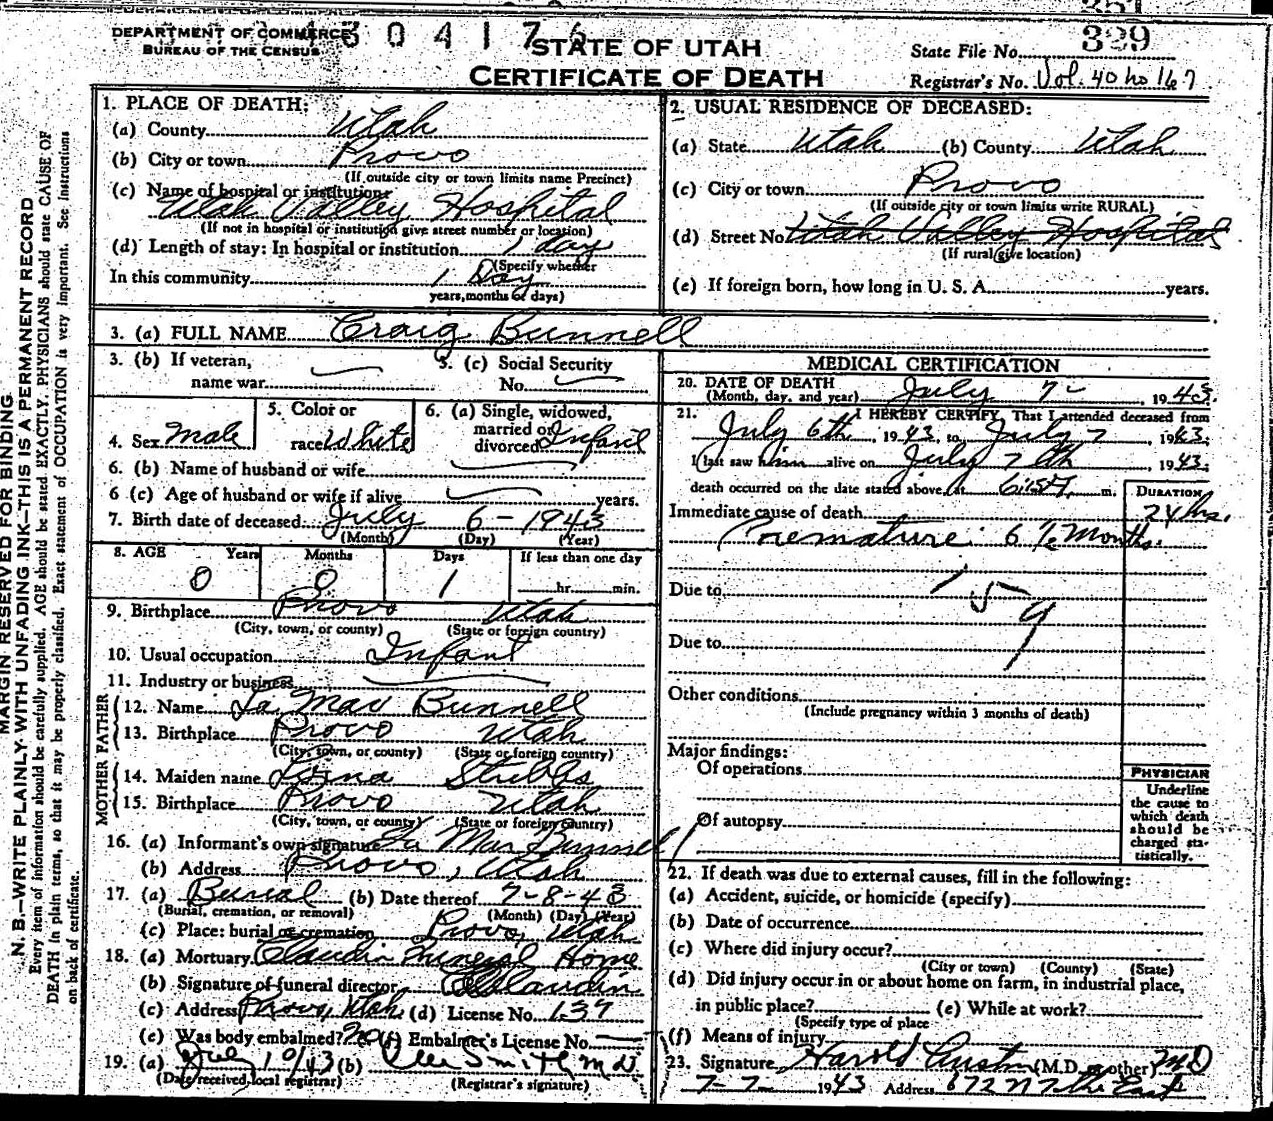 DEPARTMENT OF COMMERCE
BUREAU OF THE CENSUS
STATE OF UTAH
CERTIFICATE OF DEATH
State File No. 329
Registrar's No. Vol. 40 no 167
MARGIN RESERVED FOR BINDING
N. B.—WRITE PLAINLY WITH UNFADING INK—THIS IS A PERMANENT RECORD
Every item of information should be carefully supplied. AGE should be stated EXACTLY. PHYSICIANS should state CAUSE OF
DEATH in plain terms, so that it may be properly classified. Exact statement of OCCUPATION is very important. See instructions
on back of certificate.
1. PLACE OF DEATH:
(a) County Utah
(b) City or town Provo
(If outside city or town limits name Precinct)
(c) Name of hospital or institution:
Utah Valley Hospital
(If not in hospital or institution give street number or location)
(d) Length of stay: In hospital or institution 1 day
(Specify whether
In this community 1 Day
years, months or days)
2. USUAL RESIDENCE OF DECEASED:
(a) State Utah (b) County Utah
(c) City or town Provo
(If outside city or town limits write RURAL)
(d) Street No. Utah Valley Hospital
(If rural give location)
(e) If foreign born, how long in U. S. A. years.
3. (a) FULL NAME Craig Bunnell
3. (b) If veteran,
name war
3. (c) Social Security
No.
4. Sex Male
5. Color or
race White
6. (a) Single, widowed,
married or
divorced Infant
6. (b) Name of husband or wife
6 (c) Age of husband or wife if alive years.
7. Birth date of deceased July 6 - 1943
(Month) (Day) (Year)
8. AGE Years Months Days If less than one day
0 0 1 hr. min.
9. Birthplace Provo Utah
(City, town, or county) (State or foreign country)
10. Usual occupation Infant
11. Industry or business
FATHER
12. Name La Mar Bunnell
13. Birthplace Provo Utah
(City, town, or county) (State or foreign country)
MOTHER
14. Maiden name Stubbs
15. Birthplace Provo Utah
(City, town, or county) (State or foreign country)
16. (a) Informant's own signature La Mar Bunnell
(b) Address Provo, Utah
17. (a) Burial (b) Date thereof 7-8-43
(Burial, cremation, or removal) (Month) (Day) (Year)
(c) Place: burial or cremation Provo, Utah
18. (a) Mortuary Claudin Funeral Home
(b) Signature of funeral director Claudin
(c) Address Provo, Utah (d) License No. 137
(e) Was body embalmed? No (f) Embalmer's License No.
19. (a) July 10/43 (b) Smith M.D.
(Date received, local registrar) (Registrar's signature)
MEDICAL CERTIFICATION
20. DATE OF DEATH July 7 - , 1943
(Month, day, and year)
21. I HEREBY CERTIFY, That I attended deceased from
July 6th, 1943, to July 7, 1943;
I last saw him alive on July 7th 1943;
death occurred on the date stated above, at m.
DURATION
Immediate cause of death 24 hrs.
Premature: 6 ½ Months.
Due to 159
Due to
Other conditions
(Include pregnancy within 3 months of death)
Major findings:
Of operations
Of autopsy
PHYSICIAN
Underline
the cause to
which death
should be
charged sta-
tistically.
22. If death was due to external causes, fill in the following:
(a) Accident, suicide, or homicide (specify)
(b) Date of occurrence
(c) Where did injury occur?
(City or town) (County) (State)
(d) Did injury occur in or about home on farm, in industrial place,
in public place? (e) While at work?
(Specify type of place
(f) Means of injury
23. Signature Harold Austin (M.D. or other) MD
7-7 1943 Address 672 N 7th East